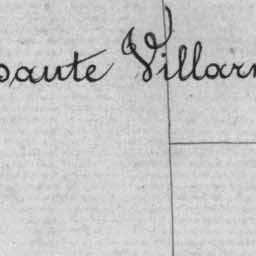 saute Villar